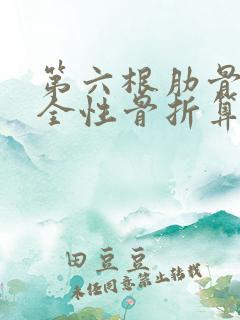 第六根肋骨
全性骨折算
田豆豆
未经同意禁止转载